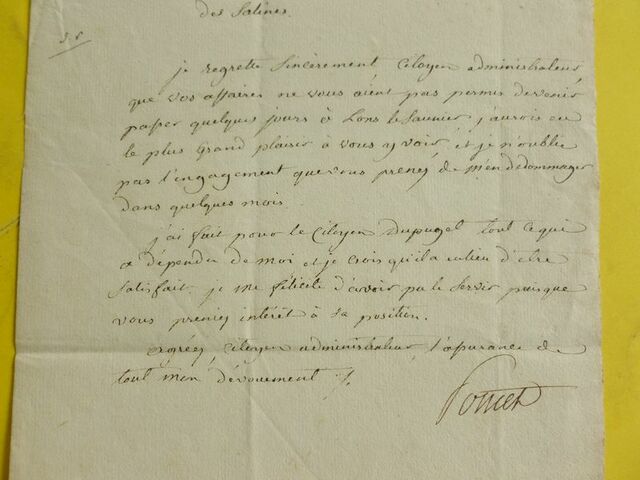 des Salines.
je regrette sincèrement Citoyen administrateur
que vos affaires ne vous aient pas permis de venir
passer quelques jours à Lons le Saunier j'aurois eu
le plus Grand plaisir à vous y voir, et je n'oublie
pas l'engagement que vous prenez de m'en dédommager
dans quelques mois.
j'ai fait pour le Citoyen Dupuget tout ce qui
a dépendu de moi et je crois qu'il a eu lieu d'être
satisfait. je me félicite d'avoir pu le servir puisque
vous preniez intérêt à sa position.
agréez, Citoyen administrateur, l'assurance de
tout mon dévouement